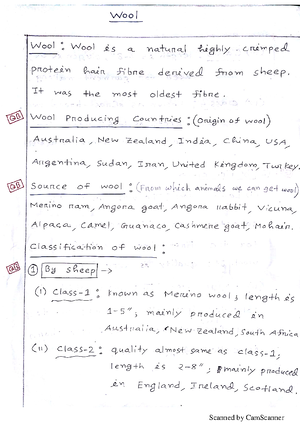 Wool
Wool : Wool is a natural highly crimped
protein hair fibre derived from sheep.
It was the most oldest fibre.
QB Wool Producing Countries : (Origin of wool)
Australia, New Zealand, India, China, USA,
Argentina, Sudan, Iran, United Kingdom, Turkey.
QB Source of wool : (From which animals we can get wool)
Merino ram, Angora goat, Angora Rabbit, Vicuna,
Alpaca, Camel, Guanaco, Cashmere goat, Mohair.
Classification of wool :
QB ① By Sheep →
(i) Class-1 : Known as Merino wool; length is
1-5", mainly produced in
Australia, New Zealand, South Africa
(ii) Class-2 : quality almost same as class-1;
length is 2-8"; mainly produced
in England, Ireland, Scotland.
Scanned by CamScanner